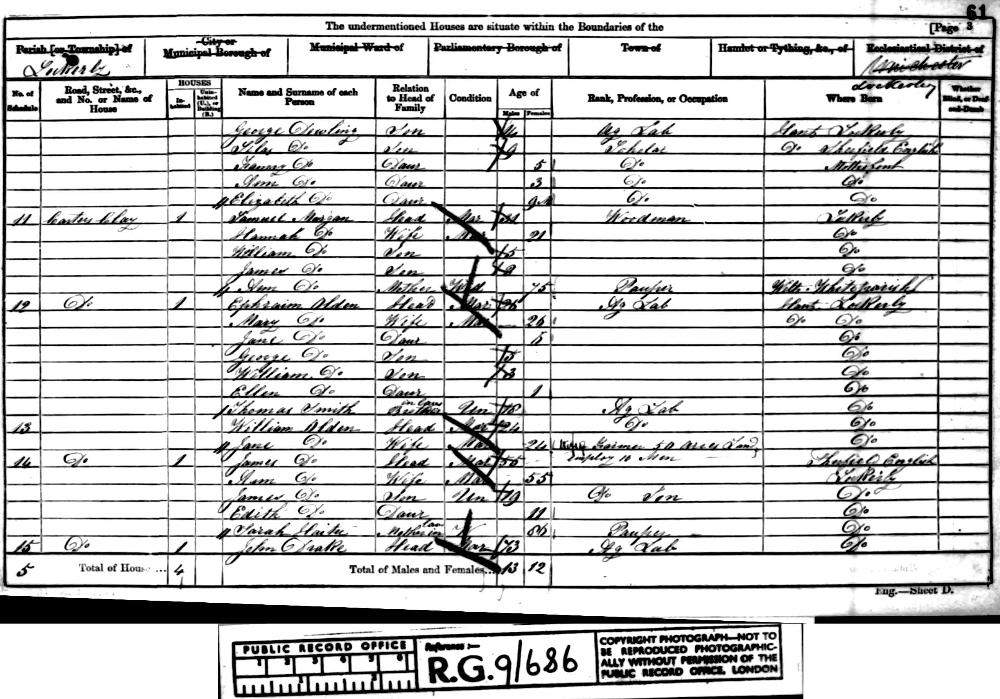 61
The undermentioned Houses are situate within the Boundaries of the [Page 3
Parish [or Township] of City or Municipal Borough of Municipal Ward of Parliamentary Borough of Town of Hamlet or Tything, &c., of Ecclesiastical District of
Lockerly Winchester
Lockerley
No. of Schedule Road, Street, &c., and No. or Name of House HOUSES Inhabited Uninhabited (U.), or Building (B.) Name and Surname of each Person Relation to Head of Family Condition Age of Males Females Rank, Profession, or Occupation Where Born Whether Blind, or Deaf-and-Dumb
George Son Ag Lab Hants Lockerly
Silas Do Son 9 Scholar Do Sherfield English
Fanny Do Daur 5 Do Mottisfont
Ann Do Daur 3 Do Do
Elizabeth Do Daur Do Do
11 Carters Clay 1 Samuel Morgan Head Mar Woodman Lockerly
Hannah Do Wife Mar 21 Do
William Do Son 5 Do
James Do Son Do
Ann Do Mother Wid 75 Pauper Wilts Whiteparish
12 Do 1 Ephraim Alden Head Mar Ag Lab Hants Lockerly
Mary Do Wife Mar 26 Do Do
Jane Do Daur Do
George Do Son 5 Do
William Do Son 3 Do
Ellen Do Daur 1 Do
Thomas Smith Brother in law Un 18 Ag Lab Do
13 William Alden Head Mar 24 Do Do
Jane Do Wife Mar 24 Do
14 Do 1 James Do Head Mar 55 Farmer 50 acres Land employ 10 Men Sherfield English
Ann Do Wife Mar 55 Lockerly
James Do Son Un 19 Do Son Do
Edith Do Daur 11 Do
Sarah Mother in law W 86 Pauper Do
15 Do 1 John Drake Head Mar 73 Ag Lab Do
5 Total of Houses ... 4 Total of Males and Females... 13 12
Eng.—Sheet D.
PUBLIC RECORD OFFICE
1 2 3 4 5 6
Reference :—
R.G. 9/686
COPYRIGHT PHOTOGRAPH—NOT TO
BE REPRODUCED PHOTOGRAPHIC-
ALLY WITHOUT PERMISSION OF THE
PUBLIC RECORD OFFICE, LONDON